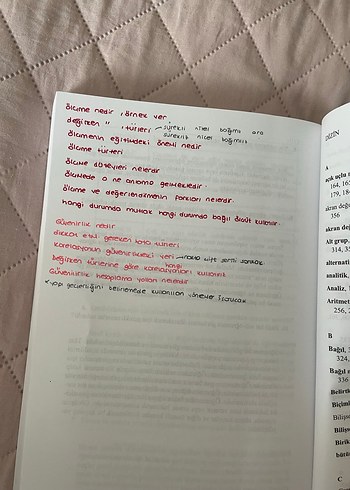 ölçme nedir, örnek ver
değişken " , türleri → sürekli nitel bağımlı ara
süreksiz nicel bağımsız
ölçmenin eğitimdeki önemi nedir
ölçme türleri
ölçme düzeyleri nelerdir
ölçmede 0 ne anlama gelmektedir
ölçme ve değerlendirmenin farkları nelerdir
hangi durumda mutlak hangi durumda bağıl ölçüt kullanılır.
Güvenirlik nedir
dikkat etmen gereken hata türleri
Korelasyonun güvenirlikteki yeri
Değişken türlerine göre hangi korelasyonları kullanırız
Güvenirlik hesaplama yolları nelerdir
yapı geçerliğini belirlemede kullanılan yöntemler
DİZİN
A
açık uçlu
164, 16
179, 18
akran değ
356
akran değ
Alt grup,
314, 3
alternati
analitik,
Analiz,
Aritmet
256, 2
B
Bağıl,
324,
Bağıl
336
Belirtk
Biçim
Biliş
Bilişs
Birik
bütü
C